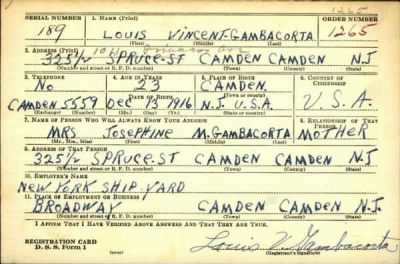 1265
SERIAL NUMBER 1. NAME (Print) ORDER NUMBER
189 LOUIS VINCENT-GAMBACORTA 1265
(First) (Middle) (Last)
2. ADDRESS (Print)
325½ SPRUCE-ST CAMDEN CAMDEN N.J
(Number and street or R. F. D. number) (Town) (County) (State)
3. TELEPHONE 4. AGE IN YEARS 5. PLACE OF BIRTH 6. COUNTRY OF CITIZENSHIP
No 23 CAMDEN
DATE OF BIRTH
CAMDEN 5559 DEC 13 1916 N.J. U.S.A. U.S.A.
(Exchange) (Number) (Mo.) (Day) (Yr.) (State or country)
7. NAME OF PERSON WHO WILL ALWAYS KNOW YOUR ADDRESS 8. RELATIONSHIP OF THAT PERSON
MRS JOSEPHINE M. GAMBACORTA MOTHER
(Mr., Mrs., Miss) (First) (Middle) (Last)
9. ADDRESS OF THAT PERSON
325½ SPRUCE.ST CAMDEN CAMDEN N.J
(Number and street or R. F. D. number) (Town) (County) (State)
10. EMPLOYER'S NAME
NEW YORK SHIP. YARD
11. PLACE OF EMPLOYMENT OR BUSINESS
BROADWAY CAMDEN CAMDEN N.J.
(Number and street or R. F. D. number) (Town) (County) (State)
I AFFIRM THAT I HAVE VERIFIED ABOVE ANSWERS AND THAT THEY ARE TRUE.
REGISTRATION CARD
D. S. S. Form 1 Louis V. Gambacorta
(Registrant's signature)